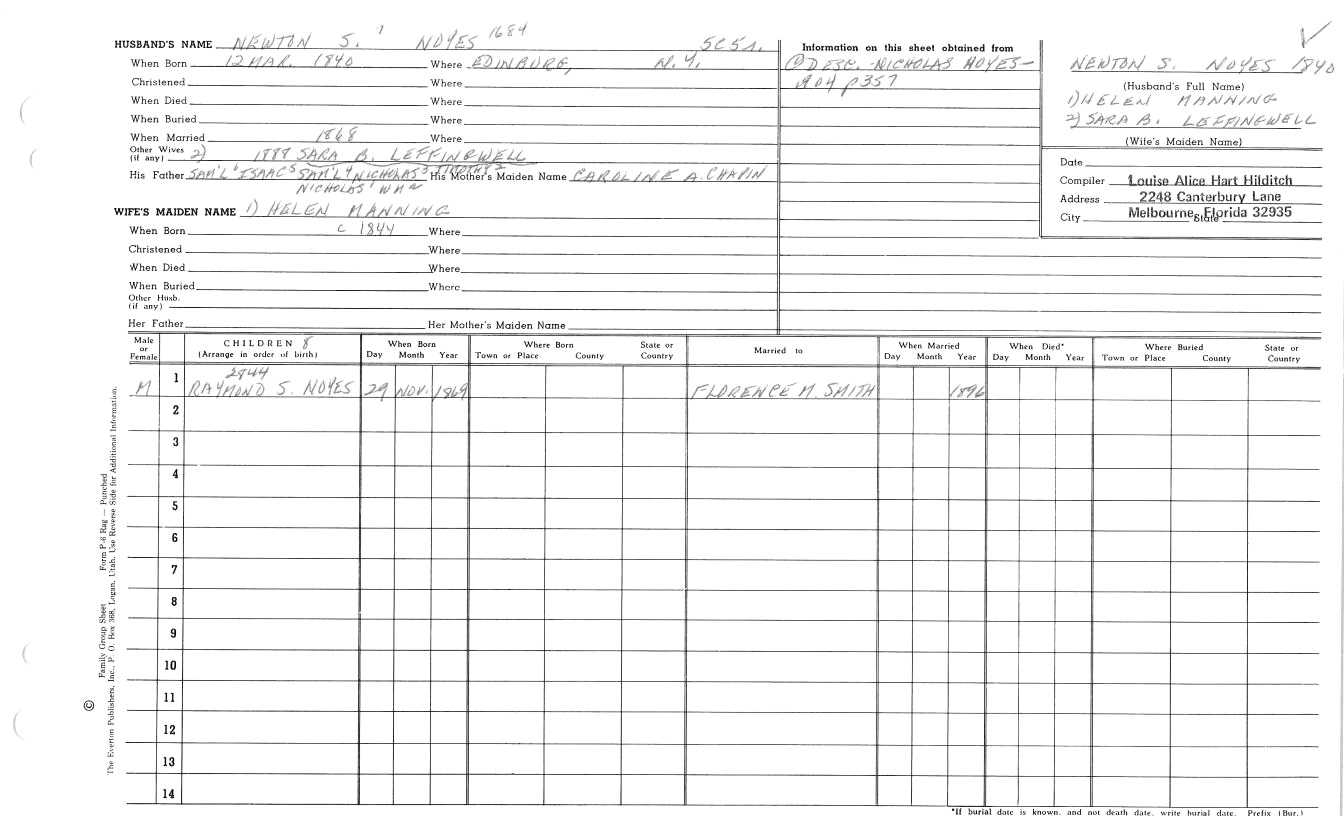 HUSBAND'S NAME NEWTON S. 7 NOYES 1684 5C5A.
When Born 12 MAR. 1840 Where EDINBURG, N.Y.
Christened Where
When Died Where
When Buried Where
When Married 1868 Where
Other Wives (if any) 2) 1889 SARA B. LEFFINGWELL
His Father SAM'L 6 ISAAC 5 SAM'L 4 NICHOLAS 3 TIMOTHY 2 His Mother's Maiden Name CAROLINE A. CHAPIN
NICHOLAS 1 WM
WIFE'S MAIDEN NAME 1) HELEN MANNING
When Born c 1844 Where
Christened Where
When Died Where
When Buried Where
Other Husb. (if any)
Her Father Her Mother's Maiden Name
Information on this sheet obtained from
① DESC. - NICHOLAS NOYES -
p 357
NEWTON S. NOYES 1840
(Husband's Full Name)
1) HELEN MANNING
2) SARA B. LEFFINGWELL
(Wife's Maiden Name)
Date
Compiler Louise Alice Hart Hilditch
Address 2248 Canterbury Lane
City Melbourne, Florida 32935 State
Male or Female CHILDREN 8 (Arrange in order of birth) When Born Day Month Year Where Born Town or Place County State or Country Married to When Married Day Month Year When Died* Day Month Year Where Buried Town or Place County State or Country
2844
M 1 RAYMOND S. NOYES 29 NOV. 1869 FLORENCE M. SMITH 1896
2
3
4
5
6
7
8
9
10
11
12
13
14
*If burial date is known, and not death date, write burial date. Prefix (Bur.)
© Family Group Sheet Form P-6 Rag — Punched
The Everton Publishers, Inc., P. O. Box 368, Logan, Utah. Use Reverse Side for Additional Information.